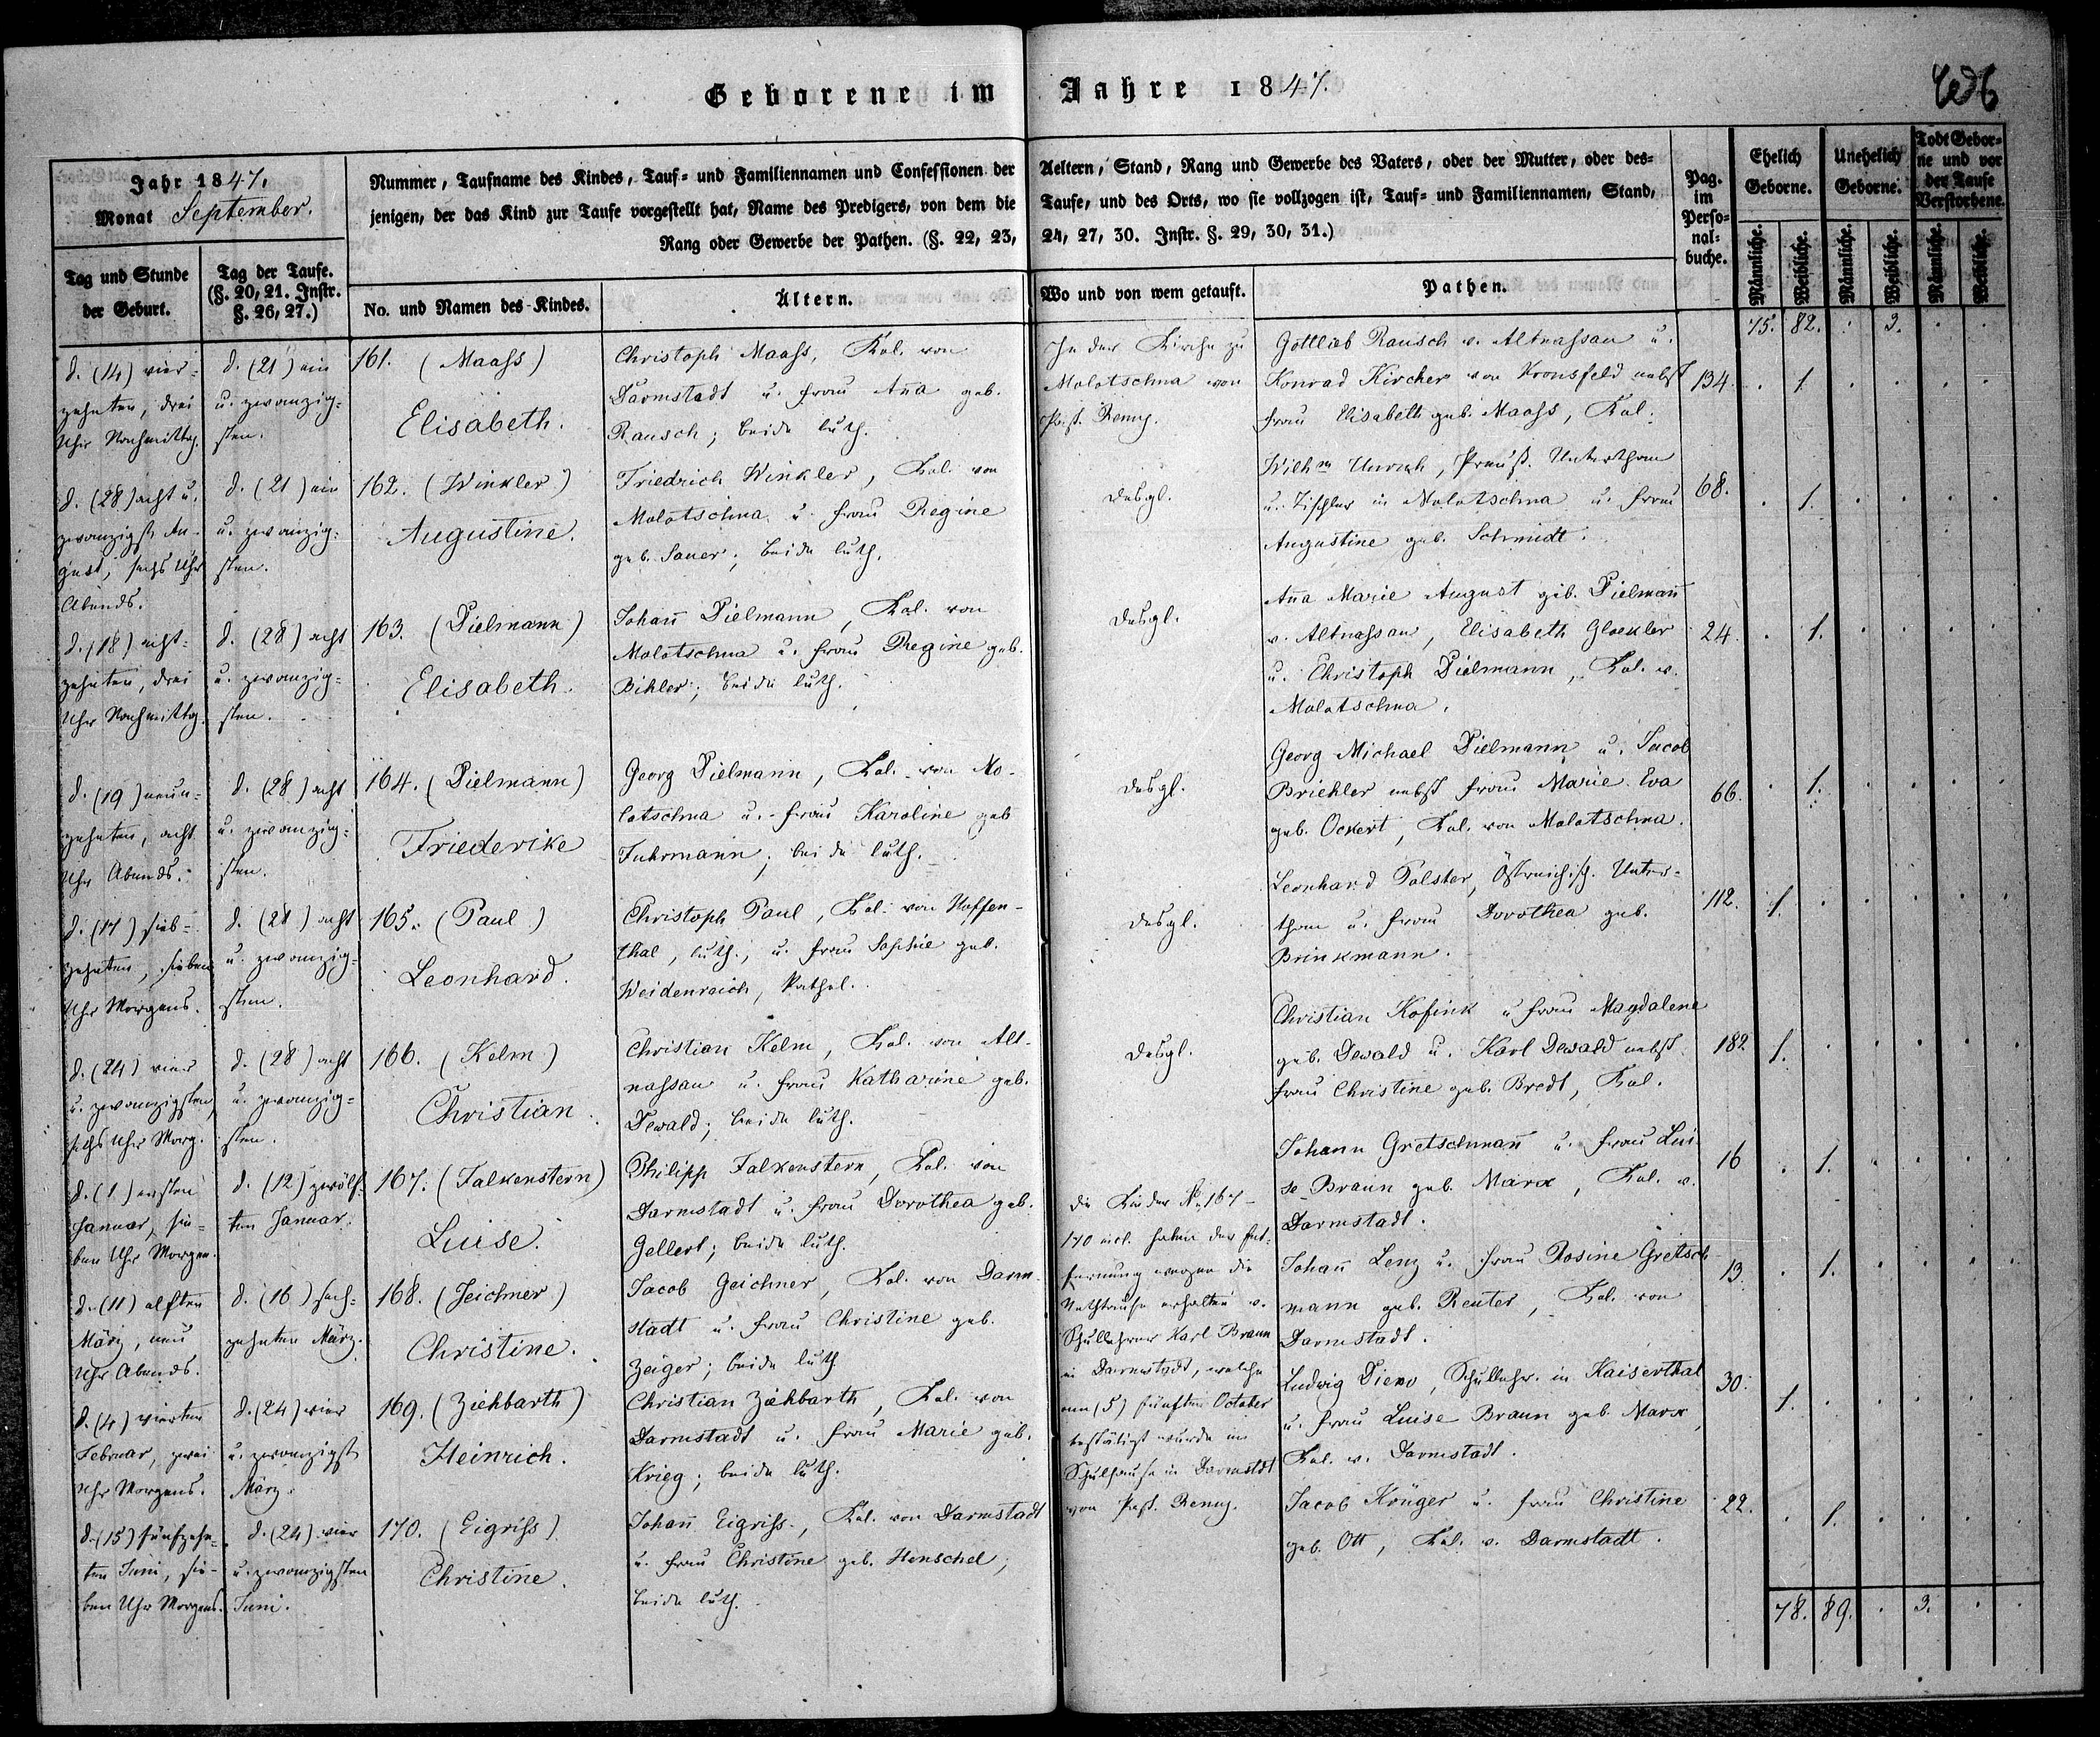 Geborene im Jahre 1847.
Jahr 1847.
Monat September.
Nummer, Taufname des Kindes, Tauf- und Familiennamen und Confessionen der Aeltern, Stand, Rang und Gewerbe des Vaters, oder der Mutter, oder des-
jenigen, der das Kind zur Taufe vorgestellt hat, Name des Predigers, von dem die Taufe, und des Orts, wo sie vollzogen ist, Tauf- und Familiennamen, Stand,
Rang oder Gewerbe der Pathen. (§. 22, 23, 24, 27, 30. Instr. §. 29, 30, 31.)
Pag.
im
Perso-
nal-
buche.
Ehelich
Geborne.
Unehelich
Geborne.
Todt Gebor-
ne und vor
der Taufe
Verstorbene.
Tag und Stunde
der Geburt.
Tag der Taufe.
(§. 20, 21. Instr.
§. 26, 27.)
No. und Namen des Kindes.
Ältern.
Wo und von wem getauft.
Pathen.
Männliche.
Weibliche.
Männliche.
Weibliche.
Männliche.
Weibliche.
75. 82. . 3. . .
d. (14) vier-
zehnten, drei
Uhr Nachmittag.
d. (21) ein
u. zwanzig-
sten.
161. (Maass)
Elisabeth.
Christoph Maass, Kol. von
Darmstadt u. Frau Anna geb.
Rausch; beide luth.
In der Kirche zu
Molotschna von
Past. Remy.
Gottlieb Rausch v. Altnassau u.
Konrad Kircher von Kronsfeld nebst
Frau Elisabeth geb. Maass, Kol.
134. . 1. . . . .
d. (28) acht u.
zwanzigst. Au-
gust, sechs Uhr
Abends.
d. (21) ein
u. zwanzig-
sten.
162. (Winkler)
Augustine.
Friedrich Winkler, Kol. von
Molotschna u. Frau Regine
geb. Sauer; beide luth.
desgl.
Wilhm Unruh, Preuß. Unterthan
u. Tischler in Molotschna u. Frau
Augustine geb. Schmidt.
68. . 1. . . . .
d. (18) acht-
zehnten, drei
Uhr Nachmittag.
d. (28) acht
u. zwanzig-
sten.
163. (Dielmann)
Elisabeth.
Johann Dielmann, Kol. von
Molotschna u. Frau Regine geb.
Bihler; beide luth.
desgl.
Anna Marie August geb. Dielmann
v. Altnassau, Elisabeth Glockler
u. Christoph Dielmann, Kol. v.
Molotschna.
24. . 1. . . . .
d. (19) neun-
zehnten, acht
Uhr Abends.
d. (28) acht
u. zwanzig-
sten.
164. (Dielmann)
Friederike
Georg Dielmann, Kol. von Mo-
lotschna u. Frau Karoline geb
Fuhrmann; beide luth.
desgl.
Georg Michael Dielmann u. Jacob
Briehler nebst Frau Marie Eva
geb. Ockert, Kol. von Molotschna.
66. . 1. . . . .
d. (17) sieb-
zehnten, sieben
Uhr Morgens.
d. (28) acht
u. zwanzig-
sten.
165. (Paul)
Leonhard.
Christoph Paul, Kol. von Hoffen-
thal, luth., u. Frau Sophie geb.
Weidenreich, kathol.
desgl.
Leonhard Polster, Östreichisch. Unter-
than u. Frau Dorothea geb.
Brinkmann.
112. 1. . . . . .
d. (24) vier
u. zwanzigsten,
sechs Uhr Morg.
d. (28) acht
u. zwanzig-
sten.
166. (Kelm)
Christian.
Christian Kelm, Kol. von Alt-
nassau u. Frau Katharine geb.
Dewald; beide luth.
desgl.
Christian Kofink u Frau Magdalene
geb. Dewald u. Karl Dewald nebst
Frau Christine geb. Bredt, Kol.
182 1. . . . . .
d. (1) ersten
Januar, sie-
ben Uhr Morgen.
d. (12) zwölf-
ten Januar.
167. (Falkenstern)
Luise.
Philipp Falkenstern, Kol. von
Darmstadt u. Frau Dorothea geb.
Gellert; beide luth.
Die Kinder No 167-
170 incl. haben der Ent-
fernung wegen die
Nothtaufe erhalten v.
Schullehrer Karl Braun
in Darmstadt, welche
am (5) fünften October
bestätigt wurde im
Schulhause in Darmstdt
von Past. Remy.
Johann Gretschmann u. Frau Lui-
se Braun geb. Marx, Kol. v.
Darmstadt.
16 . 1. . . . .
d. (11) elften
März, neun
Uhr Abends.
d. (16) sech-
zehnten März.
168. (Geichner)
Christine.
Jacob Geichner, Kol. von Darm-
stadt u. Frau Christine geb.
Zeiger; beide luth
Johann Lenz u. Frau Rosine Gretsch-
mann geb. Reuter, Kol. von
Darmstadt.
13. . 1. . . . .
d. (4) vierten
Februar, zwei
Uhr Morgens.
d. (24) vier
u. zwanzigst.
März.
169. (Ziehbarth)
Heinrich.
Christian Ziehbarth, Kol. von
Darmstadt u. Frau Marie geb.
Krieg; beide luth.
Ludwig Dieno, Schullehr. in Kaiserthal
u. Frau Luise Braun geb. Marx,
Kol. v. Darmstadt.
30. 1. . . . . .
d. (15) fünfzehn-
ten Juni, sie-
ben Uhr Morgens.
d. (24) vier
u. zwanzigsten
Juni.
170. (Eigriss)
Christine.
Johann Eigriss, Kol. von Darmstadt
u. Frau Christine geb. Henschel,
beide luth.
Jacob Krüger u. Frau Christine
geb. Ott, Kol. v. Darmstadt.
22. . 1. . . . .
78. 89. . 3. . .